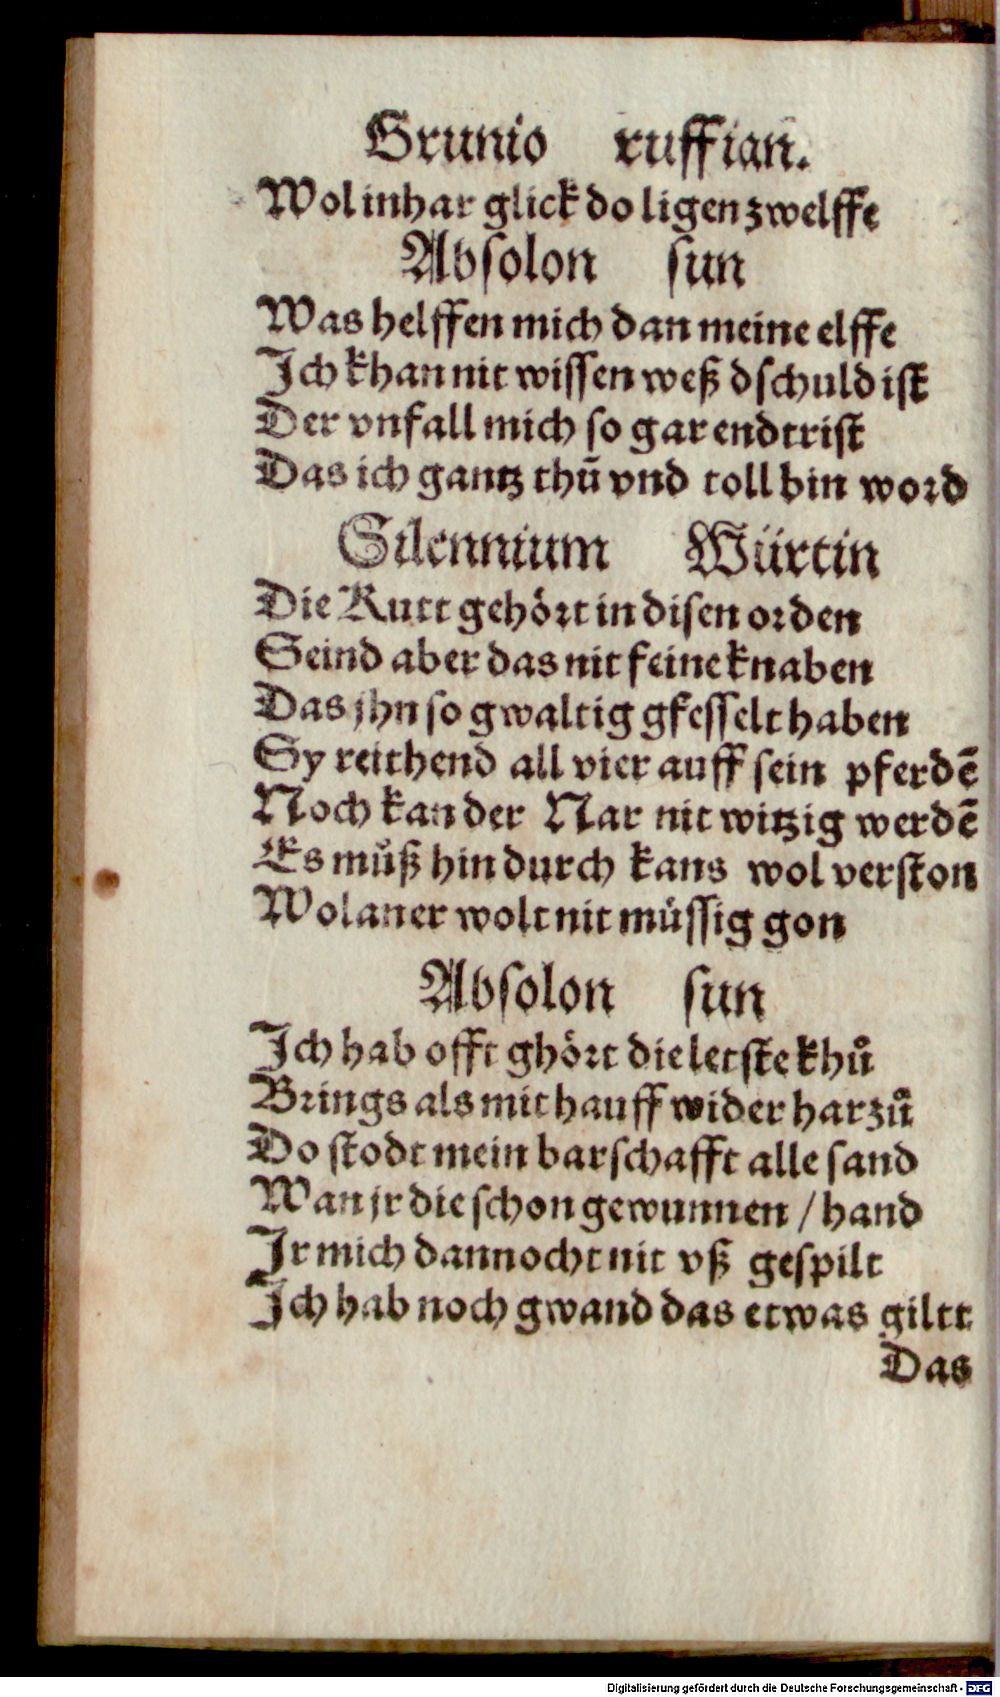 Grunio ruffian.
Wol inhar glick do ligen zwelffe
Absolon sun
Was helffen mich dan meine elffe
Ich khan nit wissen weß dschuld ist
Der vnfall mich so gar endtrist
Das ich gantz thuͤ vnd toll bin word
Silennium Würtin
Die Rutt gehoͤrt in disen orden
Seind aber das nit feine knaben
Das jhn so gwaltig gfesselt haben
Sy reithend all vier auff sein pferdẽ
Noch kan der Nar nit witzig werdẽ
Es muͦß hin durch kans wol verston
Wolan er wolt nit muͤssig gon
Absolon sun
Ich hab offt ghoͤrt die letste khuͦ
Brings als mit hauff wider harzuͦ
Do stodt mein barschafft alle sand
Wan jr die schon gewunnen / hand
Ir mich dannocht nit vß gespilt
Ich hab noch gwand das etwas giltt
Das
Digitalisierung gefördert durch die Deutsche Forschungsgemeinschaft - DFG